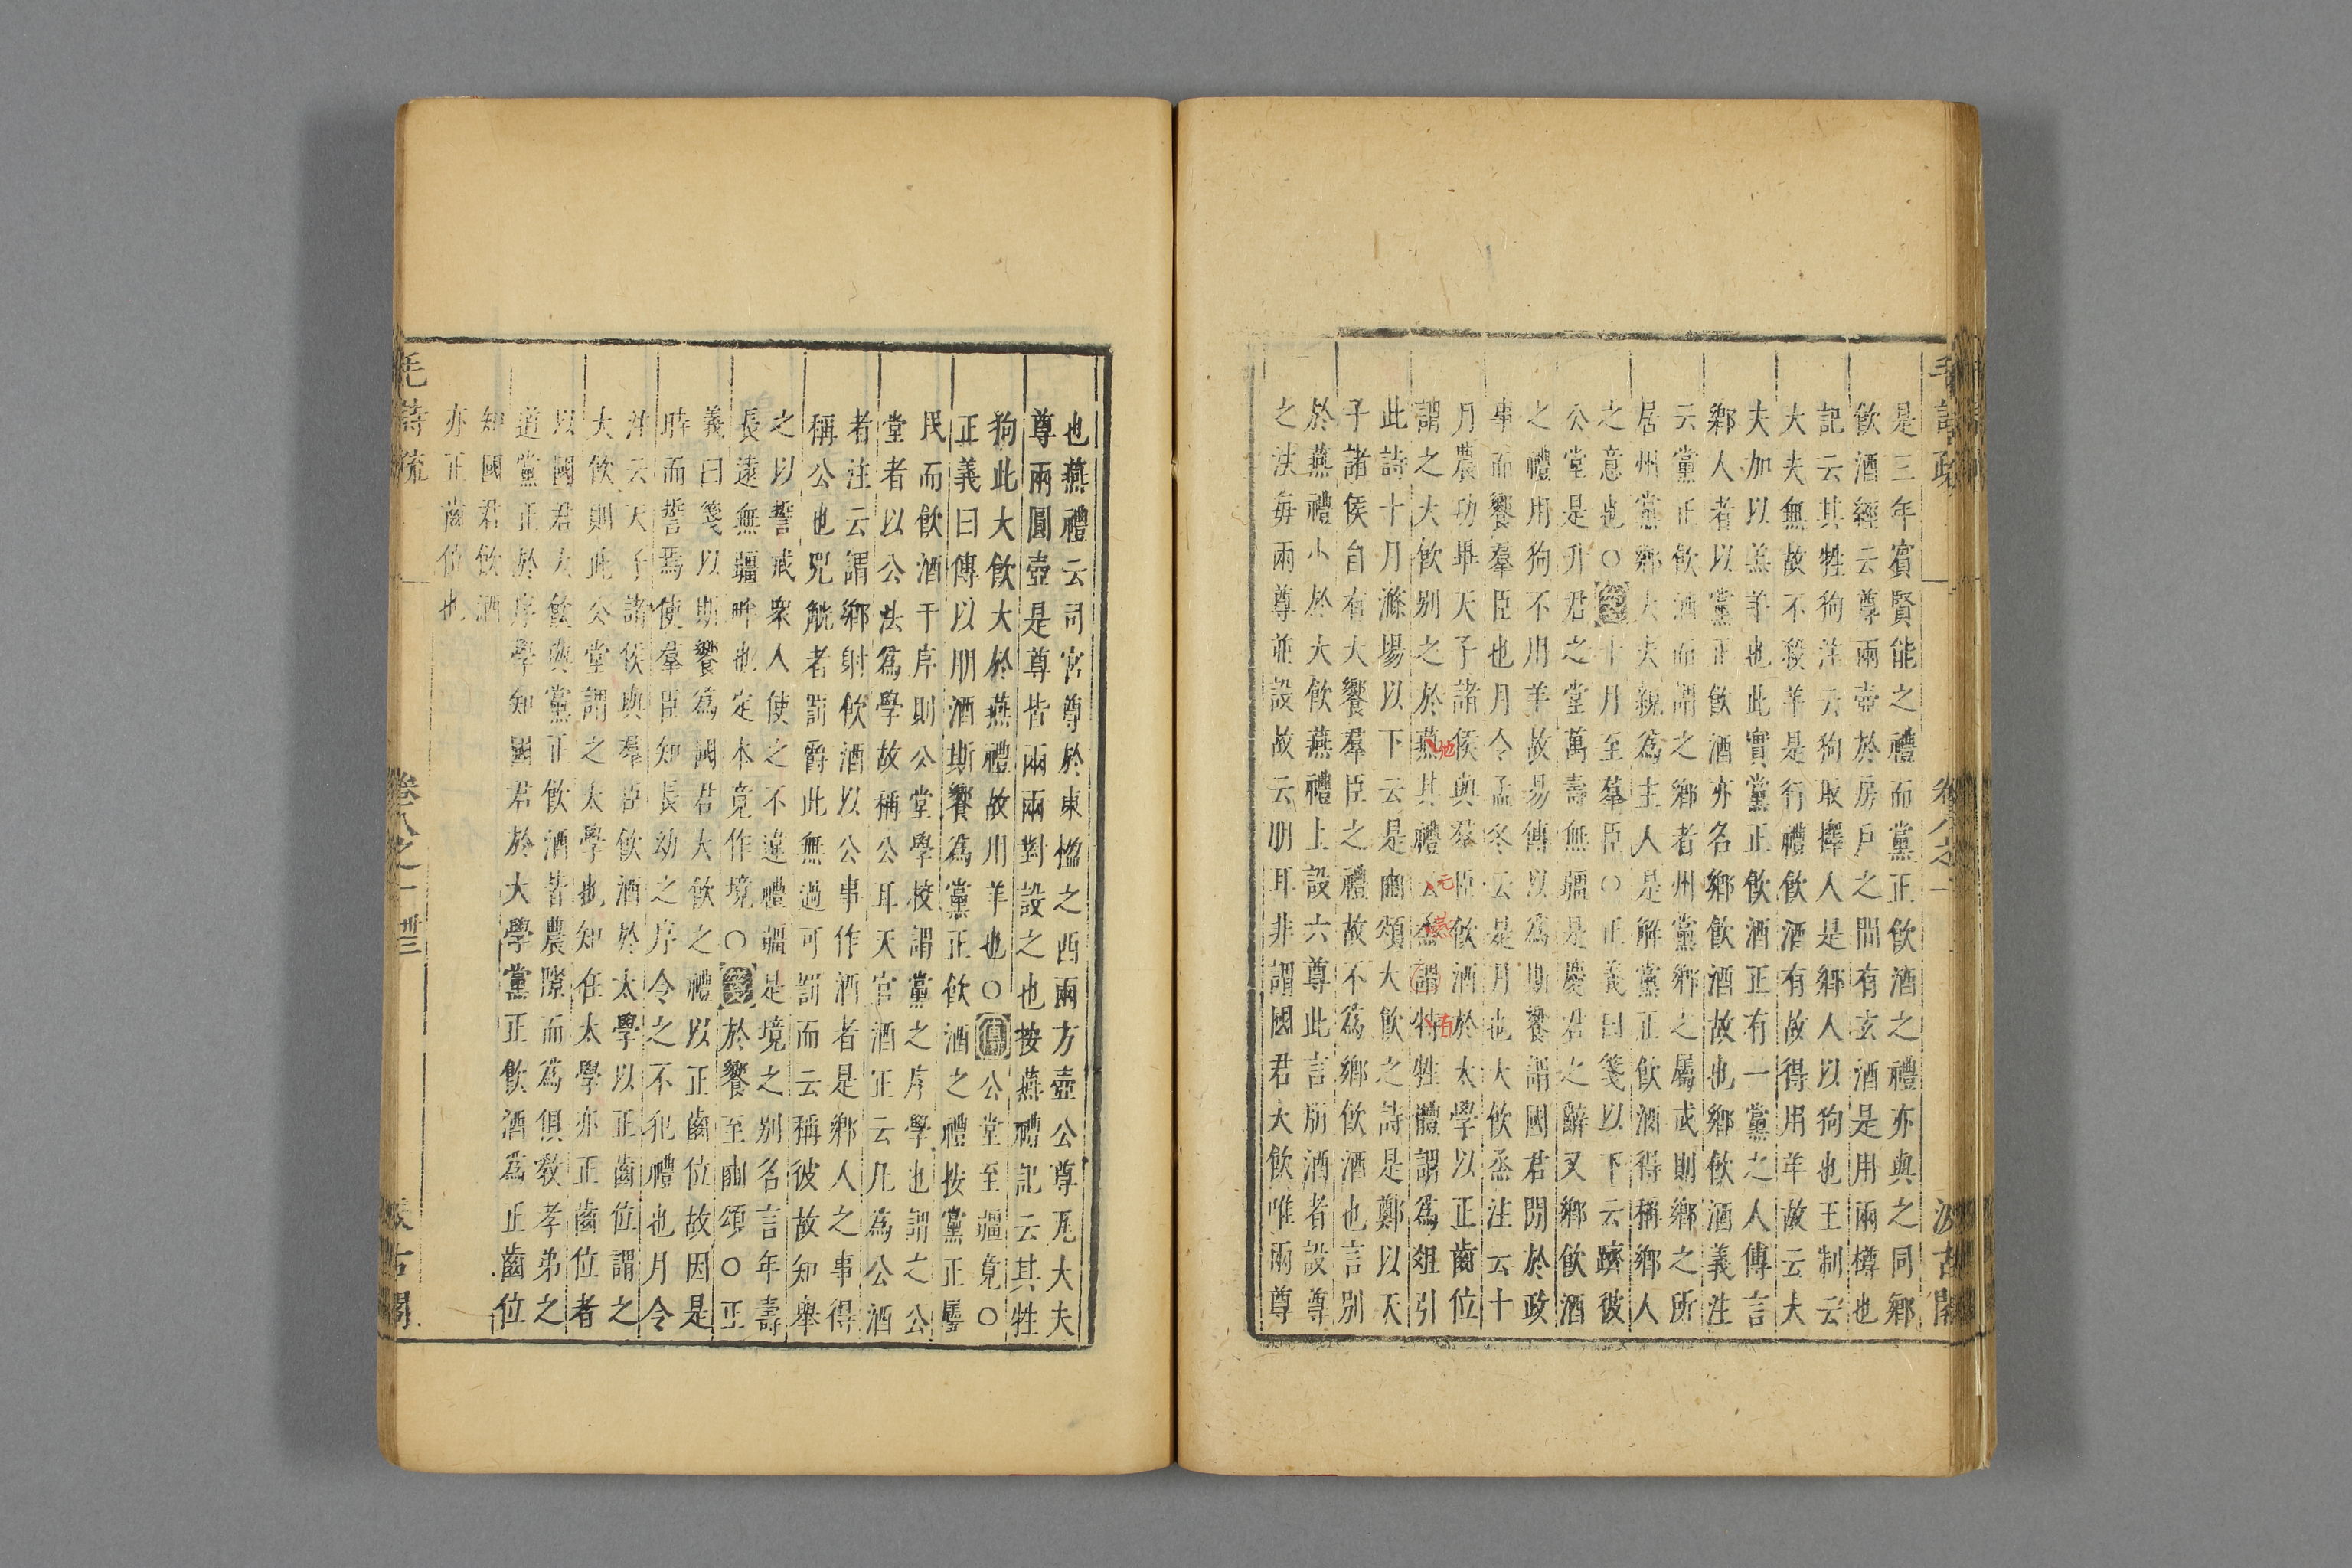 毛詩疏 卷八之一 汲古閣
是三年賓賢能之禮而黨正飲酒之禮亦與之同鄉
飲酒經云尊兩壺於房戶之間有玄酒是用兩樽也
記云其牲狗注云狗取擇人是鄉人以狗也王制云
大夫無故不殺羊是行禮飲酒有故得用羊故云大
夫加以羔羊也此實黨正飲酒正有一黨之人傳言
鄉人者以黨正飲酒亦名鄉飲酒故也鄉飲酒義注
云黨正飲酒而謂之鄉者州黨鄉之屬或則鄉之所
居州黨鄉大夫親為主人是解黨正飲酒得稱鄉人
之意也○箋十月至羣臣○正義曰箋以下云躋彼
公堂是升君之堂萬壽無疆是慶君之辭又鄉飲酒
之禮用狗不用羊故易傳以為斯饗謂國君閒於政
事而饗羣臣也月令孟冬云是月也大飲烝注云十
月農功畢天子諸侯與羣臣飲酒於太學以正齒位
謂之大飲別之於燕其禮亡烝謂特牲體謂為俎引
此詩十月滌場以下云是豳頌大飲之詩是鄭以天
子諸侯自有大饗羣臣之禮故不為鄉飲酒也言別
於燕禮小於大飲燕禮上設六尊此言朋酒者設尊
之法每兩尊並設故云朋耳非謂國君大飲唯兩尊
也燕禮云司宮尊於東楹之西兩方壺公尊瓦大夫
尊兩圓壺是尊皆兩兩對設之也按燕禮記云其牲
狗此大飲大於燕禮故用羊也○傳公堂至疆竟○
正義曰傳以朋酒斯饗為黨正飲酒之禮按黨正屬
民而飲酒于序則公堂學校謂黨之序學也謂之公
堂者以公法為學故稱公耳天官酒正云凡為公酒
者注云謂鄉射飲酒以公事作酒者是鄉人之事得
稱公也兕觥者罰爵此無過可罰而云稱彼故知舉
之以誓戒衆人使之不違禮疆是境之別名言年壽
長遠無疆畔也定本竟作境○箋於饗至豳頌○正
義曰箋以斯饗為國君大飲之禮以正齒位故因是
時而誓焉使羣臣知長幼之序令之不犯禮也月令
注云天子諸侯與羣臣飲酒於太學以正齒位謂之
大飲則此公堂謂之太學也知在太學亦正齒位者
以國君大飲與黨正飲酒皆農隙而為俱教孝弟之
道黨正於序學知國君於大學黨正飲酒為正齒位
知國君飲酒
亦正齒位也
毛詩疏 卷八之一 卌三 汲古閣